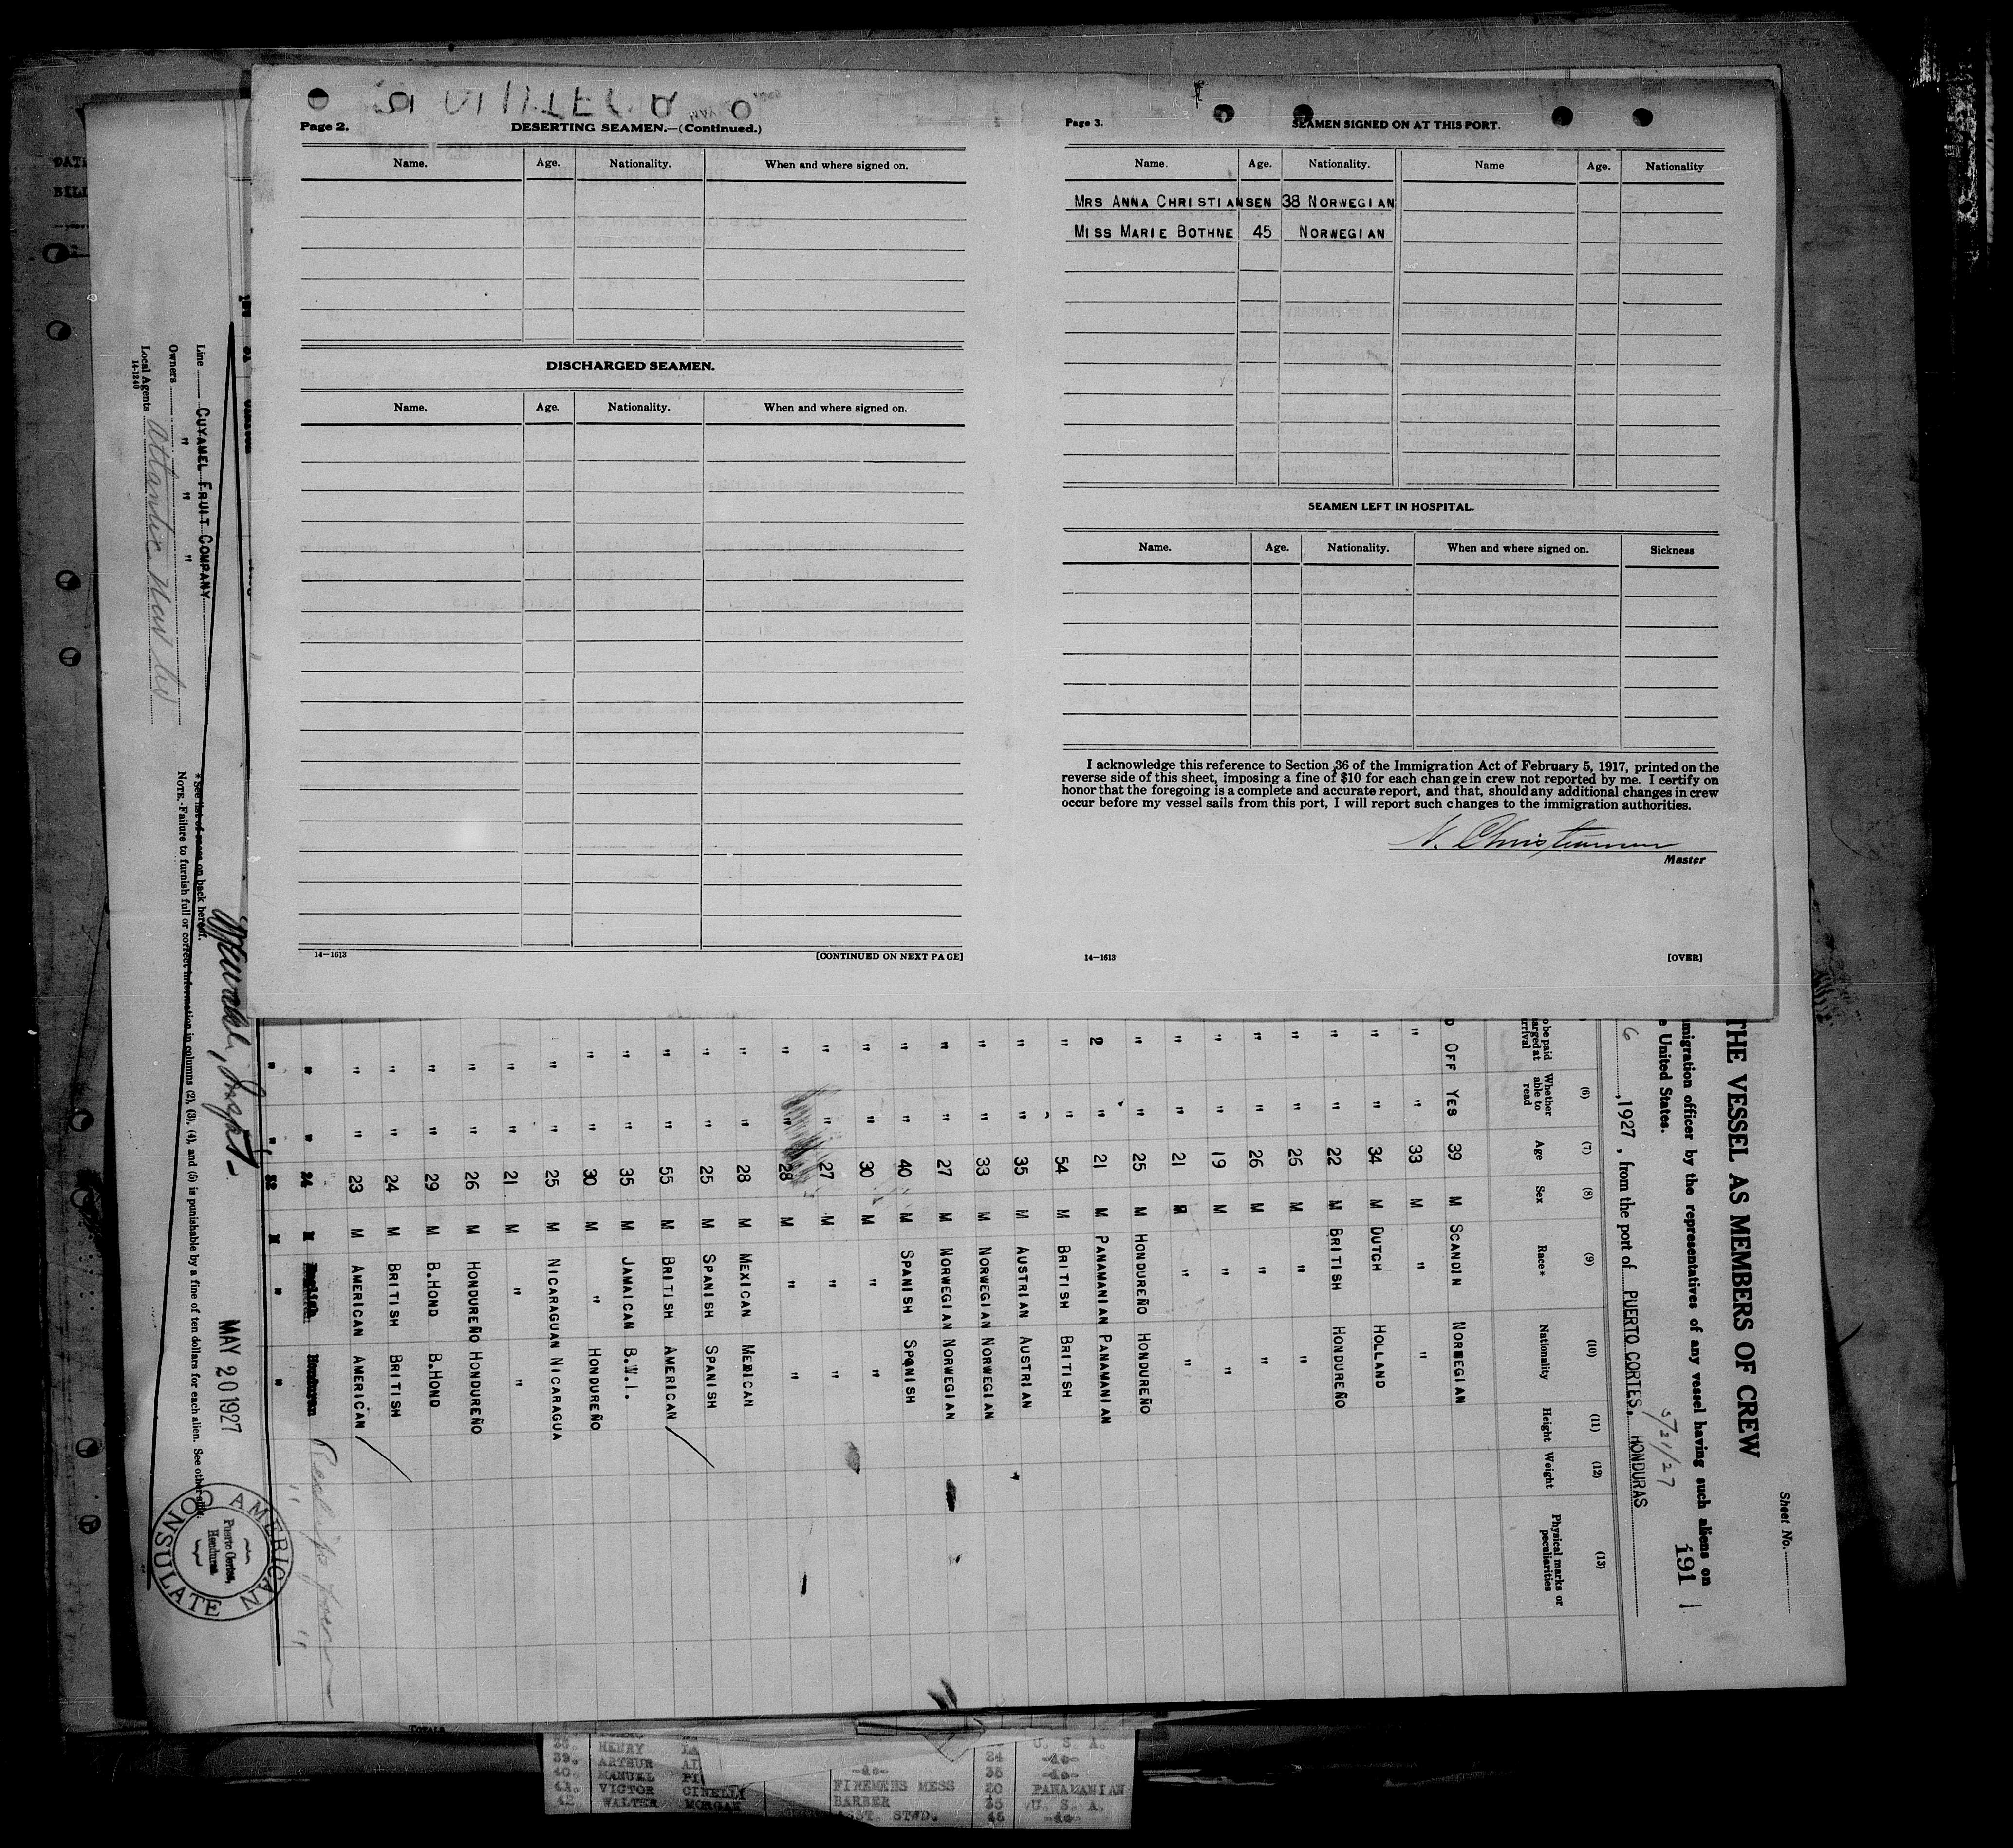 Page 2.
DESERTING SEAMEN.—(Continued.)
Name. Age. Nationality. When and where signed on.
DISCHARGED SEAMEN.
Name. Age. Nationality. When and where signed on.
14—1613
[CONTINUED ON NEXT PAGE]
Page 3.
SEAMEN SIGNED ON AT THIS PORT.
Name. Age. Nationality. Name Age. Nationality
MRS ANNA CHRISTIANSEN 38 NORWEGIAN
MISS MARIE BOTHNE 45 NORWEGIAN
SEAMEN LEFT IN HOSPITAL.
Name. Age. Nationality. When and where signed on. Sickness
I acknowledge this reference to Section 36 of the Immigration Act of February 5, 1917, printed on the
reverse side of this sheet, imposing a fine of $10 for each change in crew not reported by me. I certify on
honor that the foregoing is a complete and accurate report, and that, should any additional changes in crew
occur before my vessel sails from this port, I will report such changes to the immigration authorities.
N. Christiansen
Master
14—1613
[OVER]
Sheet No.
THE VESSEL AS MEMBERS OF CREW
immigration officer by the representatives of any vessel having such aliens on
United States.
191
6, 1927, from the port of PUERTO CORTES, HONDURAS
5/21/27
(6) (7) (8) (9) (10) (11) (12) (13)
be paid
arrival
Whether able to read Age Sex Race* Nationality Height Weight Physical marks or peculiarities
OFF YES 39 M SCANDIN NORWEGIAN
" " 33 M " "
" " 34 M DUTCH HOLLAND
" " 22 M BRITISH HONDUREÑO
" " 25 M " "
" " 26 M " "
" " 19 M " "
" " 21 M " "
" " 25 M HONDUREÑO HONDUREÑO
2 " 21 M PANAMANIAN PANAMANIAN
" " 54 M BRITISH BRITISH
" " 35 M AUSTRIAN AUSTRIAN
" " 33 M NORWEGIAN NORWEGIAN
" " 27 M NORWEGIAN NORWEGIAN
" " 40 M SPANISH SPANISH
" " 30 M " "
" " 27 M " "
" " 28 M " "
" " 28 M MEXICAN MEXICAN
" " 25 M SPANISH SPANISH
" " 55 M BRITISH AMERICAN
" " 35 M JAMAICAN B.W.I.
" " 30 M " HONDUREÑO
" " 25 M NICARAGUAN NICARAGUA
" " 21 M " "
" " 26 M HONDUREÑO HONDUREÑO
" " 29 M B.HOND B.HOND
" " 24 M BRITISH BRITISH
" " 23 M AMERICAN AMERICAN
" " 24 M English Honduran
" " 32 M " "
MAY 20 1927
AMERICAN CONSULATE
Puerto Cortes,
Honduras
Line CUYAMEL FRUIT COMPANY
Owners " " "
Local Agents
14-1240
* See list of races on back hereof.
NOTE.—Failure to furnish full or correct information in columns (2), (3), (4), and (5) is punishable by a fine of ten dollars for each alien. See other side.
TOTALS
38. HENRY U. S. A.
39. ARTHUR 24 -do-
40. MANUEL -do- 35 -do-
41. VICTOR CINELLI FIREMENS MESS 20 PANAMANIAN
42. WALTER MORGAN BARBER 35 U. S. A.
ASST. STWD. 45 -do-